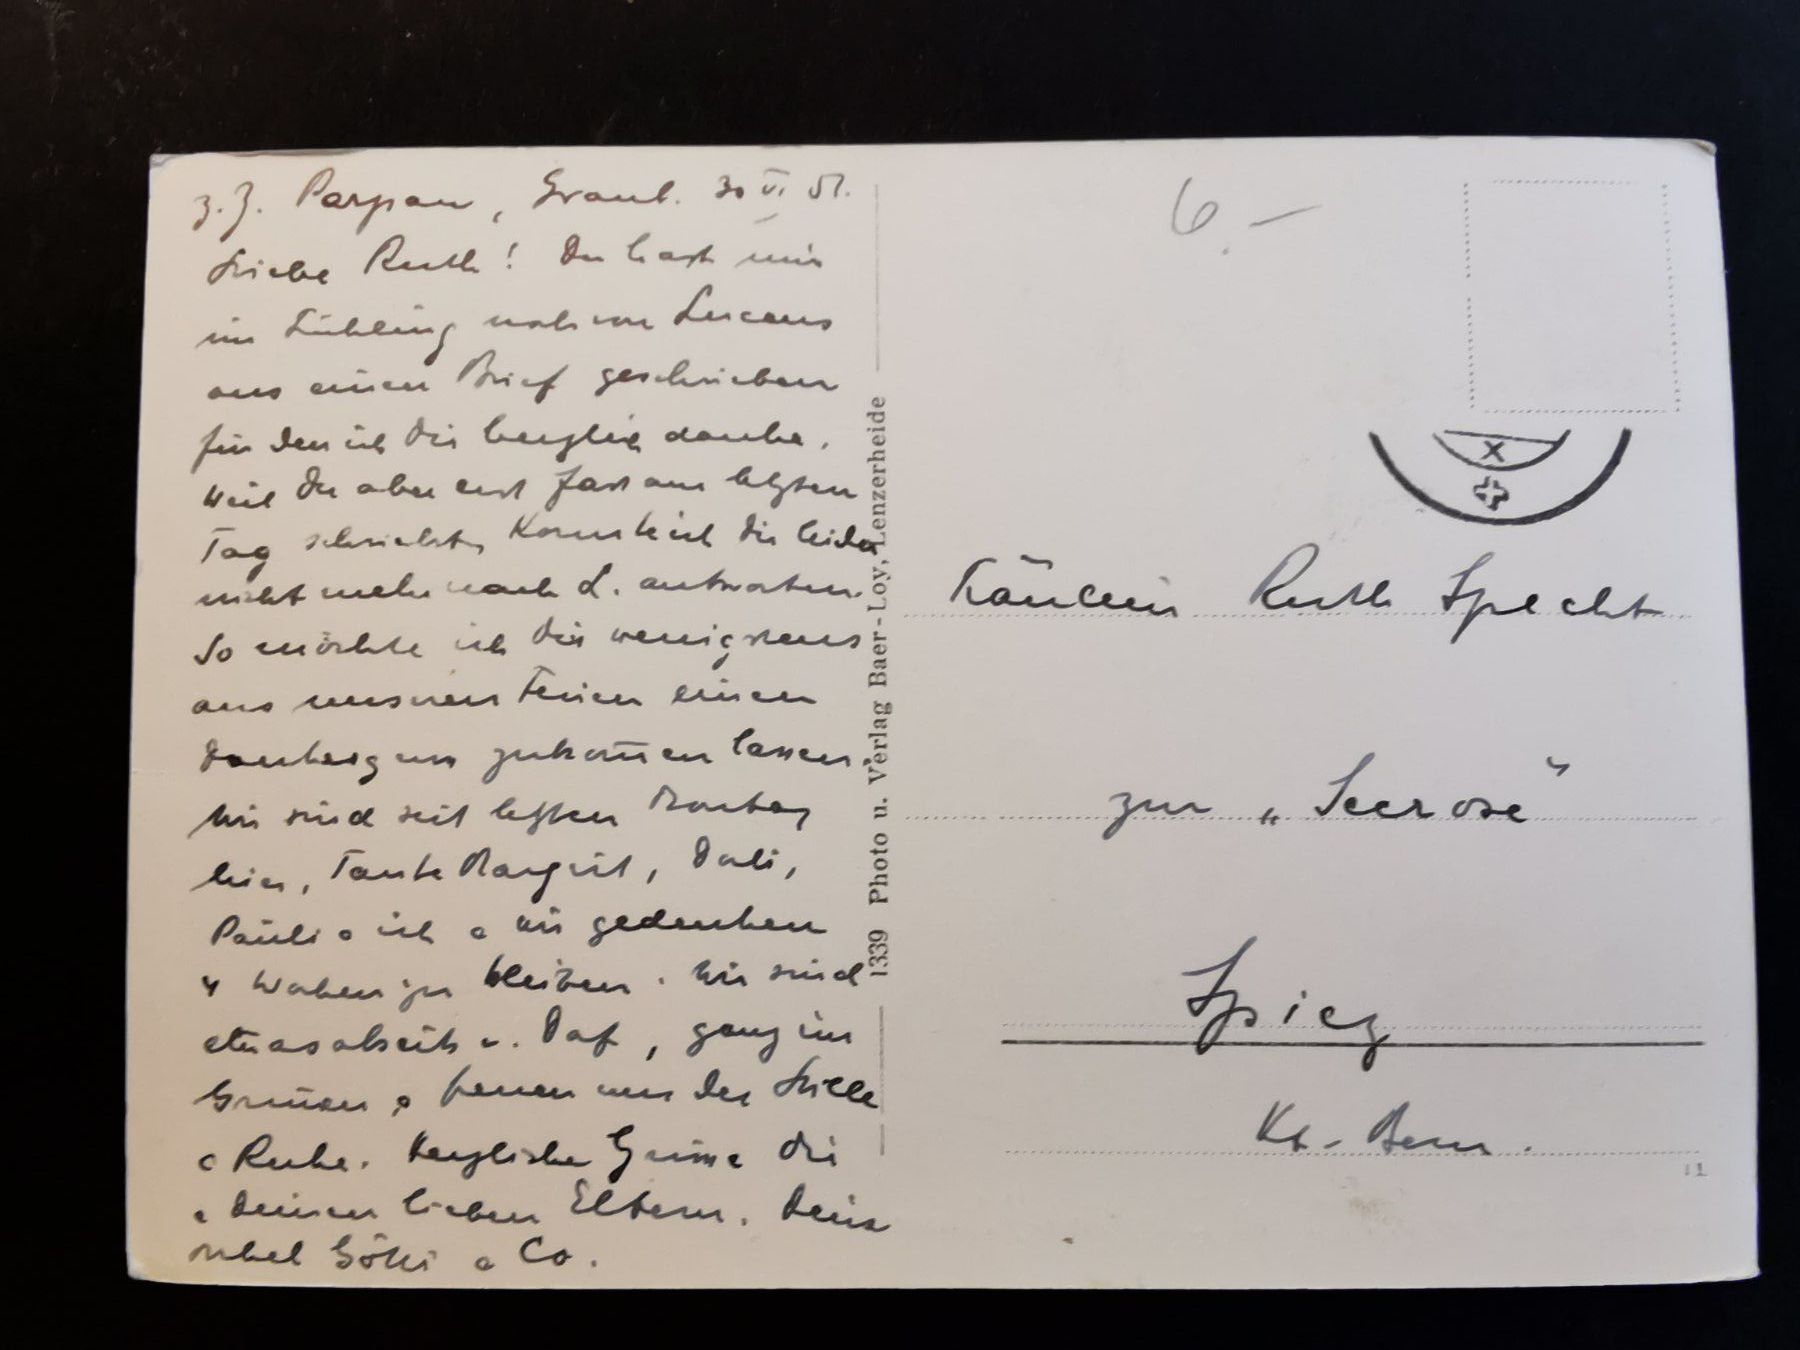 z. Z. Parpan, Graub. 30 VI 51.
Liebe Ruth! Du hast mir
im Frühling noch von
aus einen Brief geschrieben
für den ich Dir herzlich danke.
Weil Du aber erst fast am letzten
Tag schriebst, konnte ich Dir leider
nicht mehr nach L. antworten.
So möchte ich Dir wenigstens
aus unseren Ferien einen
Dankesgruss zukommen lassen.
Wir sind seit letzten Montag
hier, Tante Margrit,
Päuli & ich & wir gedenken
4 Wochen zu bleiben. Wir sind
etwas abseits v. Dorf, ganz im
Grünen & freuen uns der Stille
& Ruhe. Herzliche Grüsse Dir
& Deinen lieben Eltern. Dein
Götti & Co.
1339 Photo u. Verlag Baer-Loy, Lenzerheide
6.-
x
Fräulein Ruth Specht
zur „Seerose"
Spiez
Kt. Bern.
12